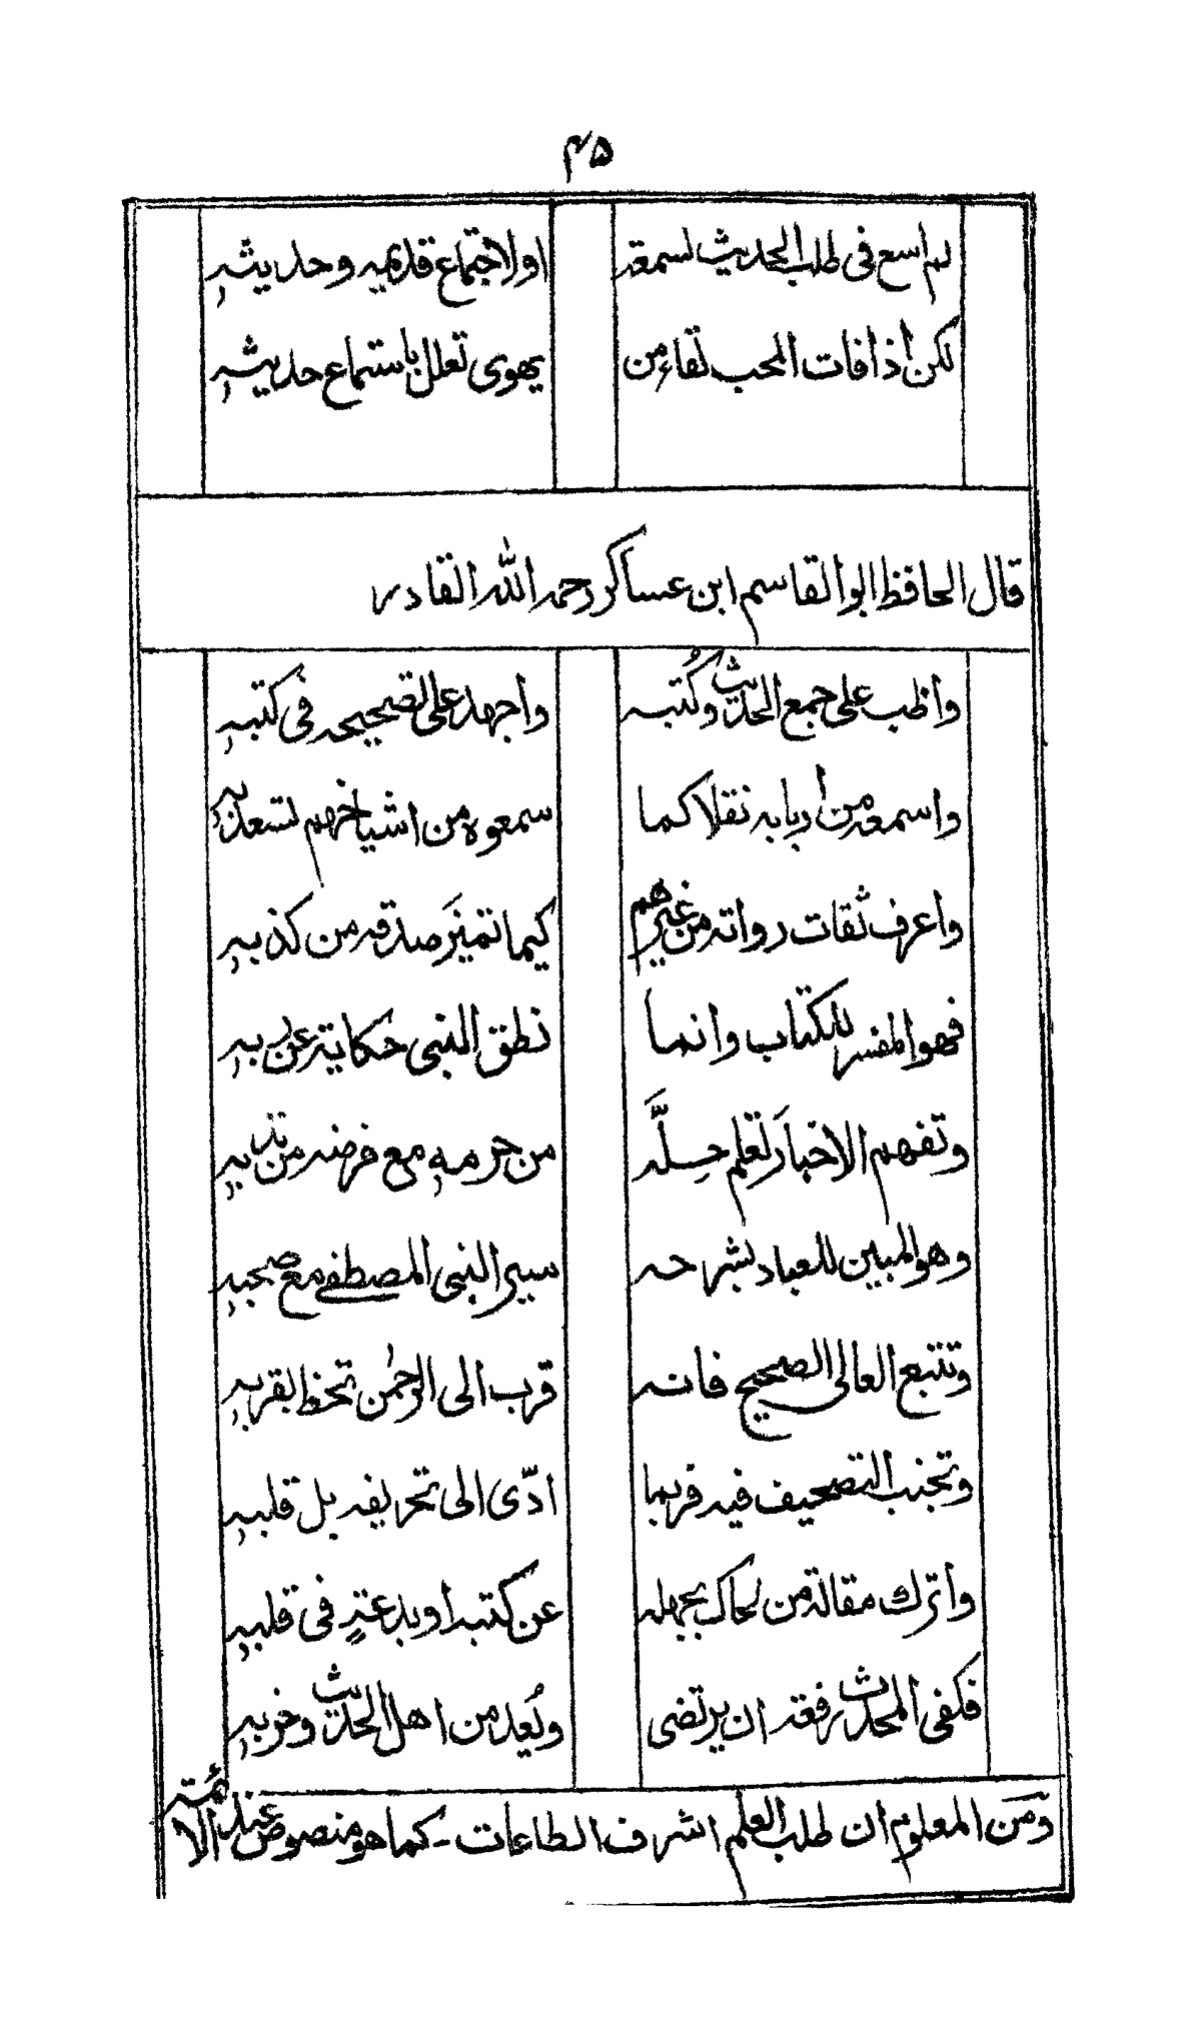 ۴۵
لم اسع فی طلب الحدیث لسمعة او لاجتماع قدیمه وحدیثهٖ
لکن اذا فات المحب لقاء من یهوی تعلل باستماع حدیثهٖ
قال الحافظ ابو القاسم ابن عساکر رحمه الله القادر
واظب علی جمع الحدیث وکُتبه واجهد علی تصحیحه فی کتبهٖ
واسمعه من أربابه نقلا کما سمعوه من اشیاخهم تسعد بهٖ
واعرف ثقات رواته من غیرهم کیما تمیزَ صدقه من کذبهٖ
فهو المفسر للکتاب وانما نطق النبی حکایة عن ربهٖ
وتفهم الاخبارَ تعلم حِلَّه من حرمهٖ مع فرضه من ندبهٖ
وهو المبین للعباد بشرحه سیر النبی المصطفی مع صحبهٖ
وتتبع العالی الصحیح فانه قرب الی الرحمٰن تحظ بقربهٖ
وتجنب التصحیف فیه فربما ادّی الی تحریفه بل قلبهٖ
واترك مقالة من لحاك بجهله عن کتبه او بدعتهٍ فی قلبهٖ
فکفی المحدث رفعة ان یرتضی ویُعد من اهل الحدیث وحزبهٖ
وَمن المعلوم ان طلب العلم اشرف الطاعات ـ کما هو منصوص عند الائمة